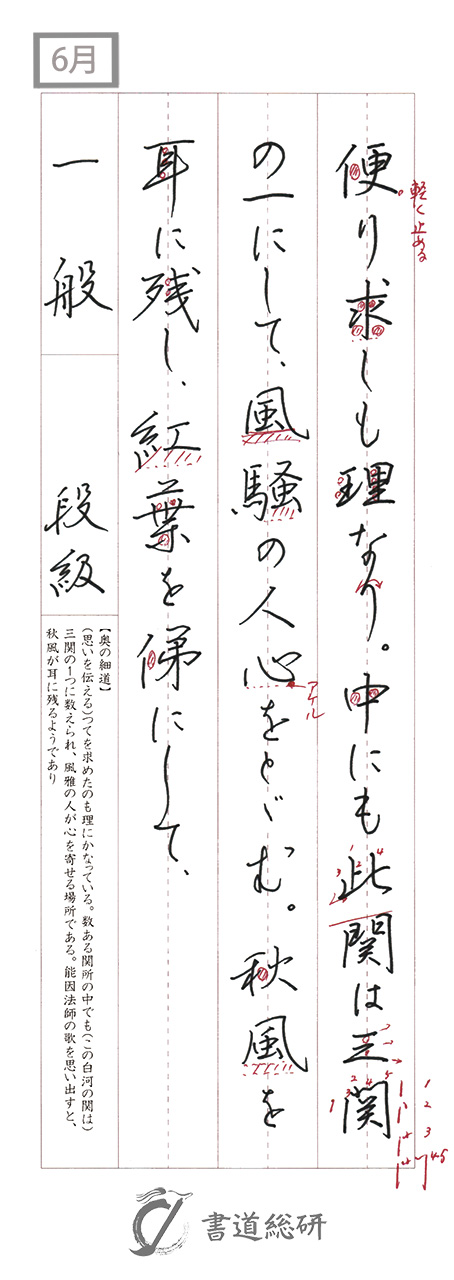 6月
便り求しも理なり。中にも此関は三関
軽く止める
の一にして、風騒の人心をとゞむ。秋風を
アケル
耳に残し、紅葉を俤にして、
一般
段級
【奥の細道】
(思いを伝える)つてを求めたのも理にかなっている。数ある関所の中でも(この白河の関は)
三関の1つに数えられ、風雅の人が心を寄せる場所である。能因法師の歌を思い出すと、
秋風が耳に残るようであり
書道総研